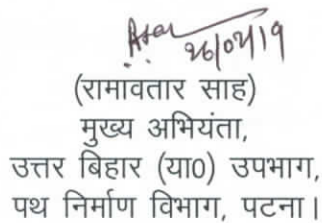 26/02/19
(रामावतार साह)
मुख्य अभियंता,
उत्तर बिहार (या0) उपभाग,
पथ निर्माण विभाग, पटना।